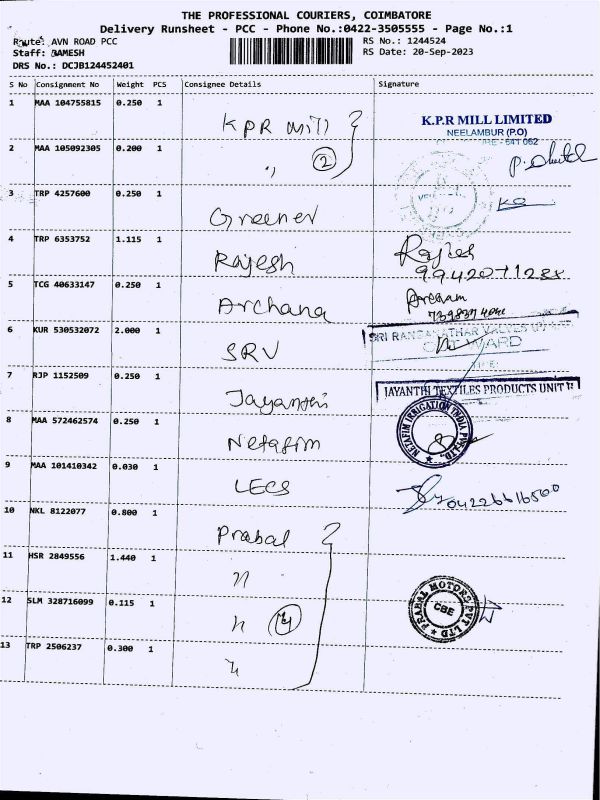 THE PROFESSIONAL COURIERS, COIMBATORE
Delivery Runsheet - PCC - Phone No.:0422-3505555 - Page No.:1
Route: AVN ROAD PCC
RS No.: 1244524
Staff: RAMESH
RS Date: 20-Sep-2023
DRS No.: DCJB124452401
S No Consignment No Weight PCS Consignee Details Signature
1 MAA 104755815 0.250 1 KPR Mill
K.P.R MILL LIMITED
NEELAMBUR (P.O)
641 062
2 MAA 105092305 0.200 1 " 2
3 TRP 4257600 0.250 1 Greener
4 TRP 6353752 1.115 1 Rajesh Rajesh
5 TCG 40633147 0.250 1 Archana Archana
6 KUR 530532072 2.000 1 SRV
SRI RANGANATHAR VALVES (P)
7 RJP 1152509 0.250 1 Jayanthi
JAYANTHI TEXTILES PRODUCTS UNIT II
8 MAA 572462574 0.250 1 Netafim
NETAFIM IRRIGATION INDIA PVT LTD.
9 MAA 101410342 0.030 1 LECS 04226616500
10 NKL 8122077 0.800 1 Prabal
11 HSR 2849556 1.440 1 "
12 SLM 328716099 0.115 1 " 4
PRABAL MOTORS PVT LTD
CBE
13 TRP 2506237 0.300 1 "